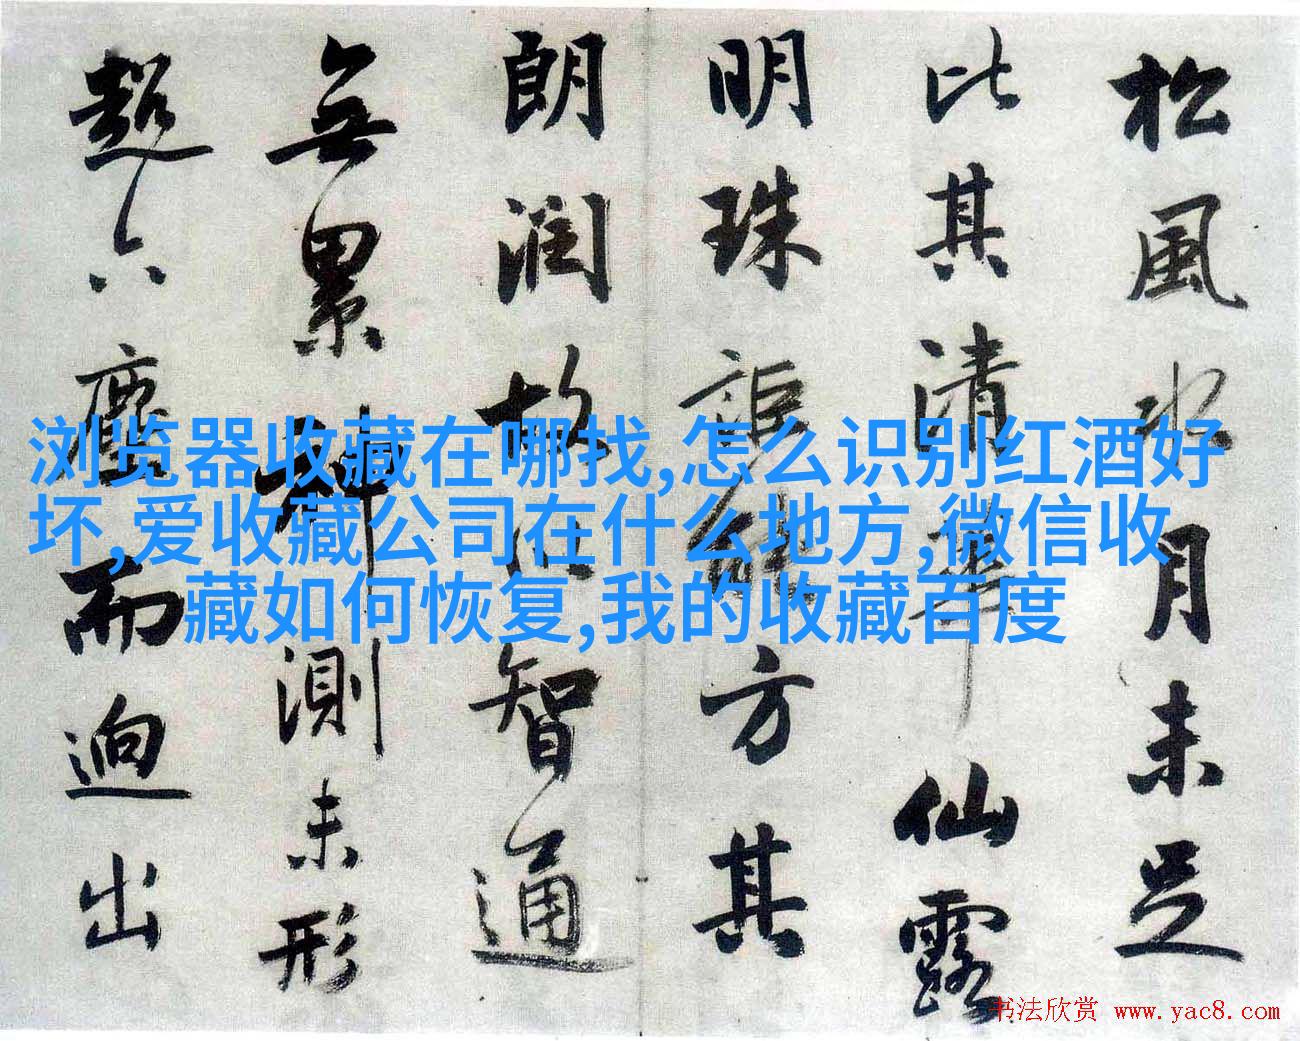 松風水月未足
比其清華仙露
明珠詎能方其
朗潤故以智通
無累神測未形
超六塵而迥出
浏览器收藏在哪找,怎么识别红酒好
坏,爱收藏公司在什么地方,微信收
藏如何恢复,我的收藏百度
书法欣赏 www.yac8.com